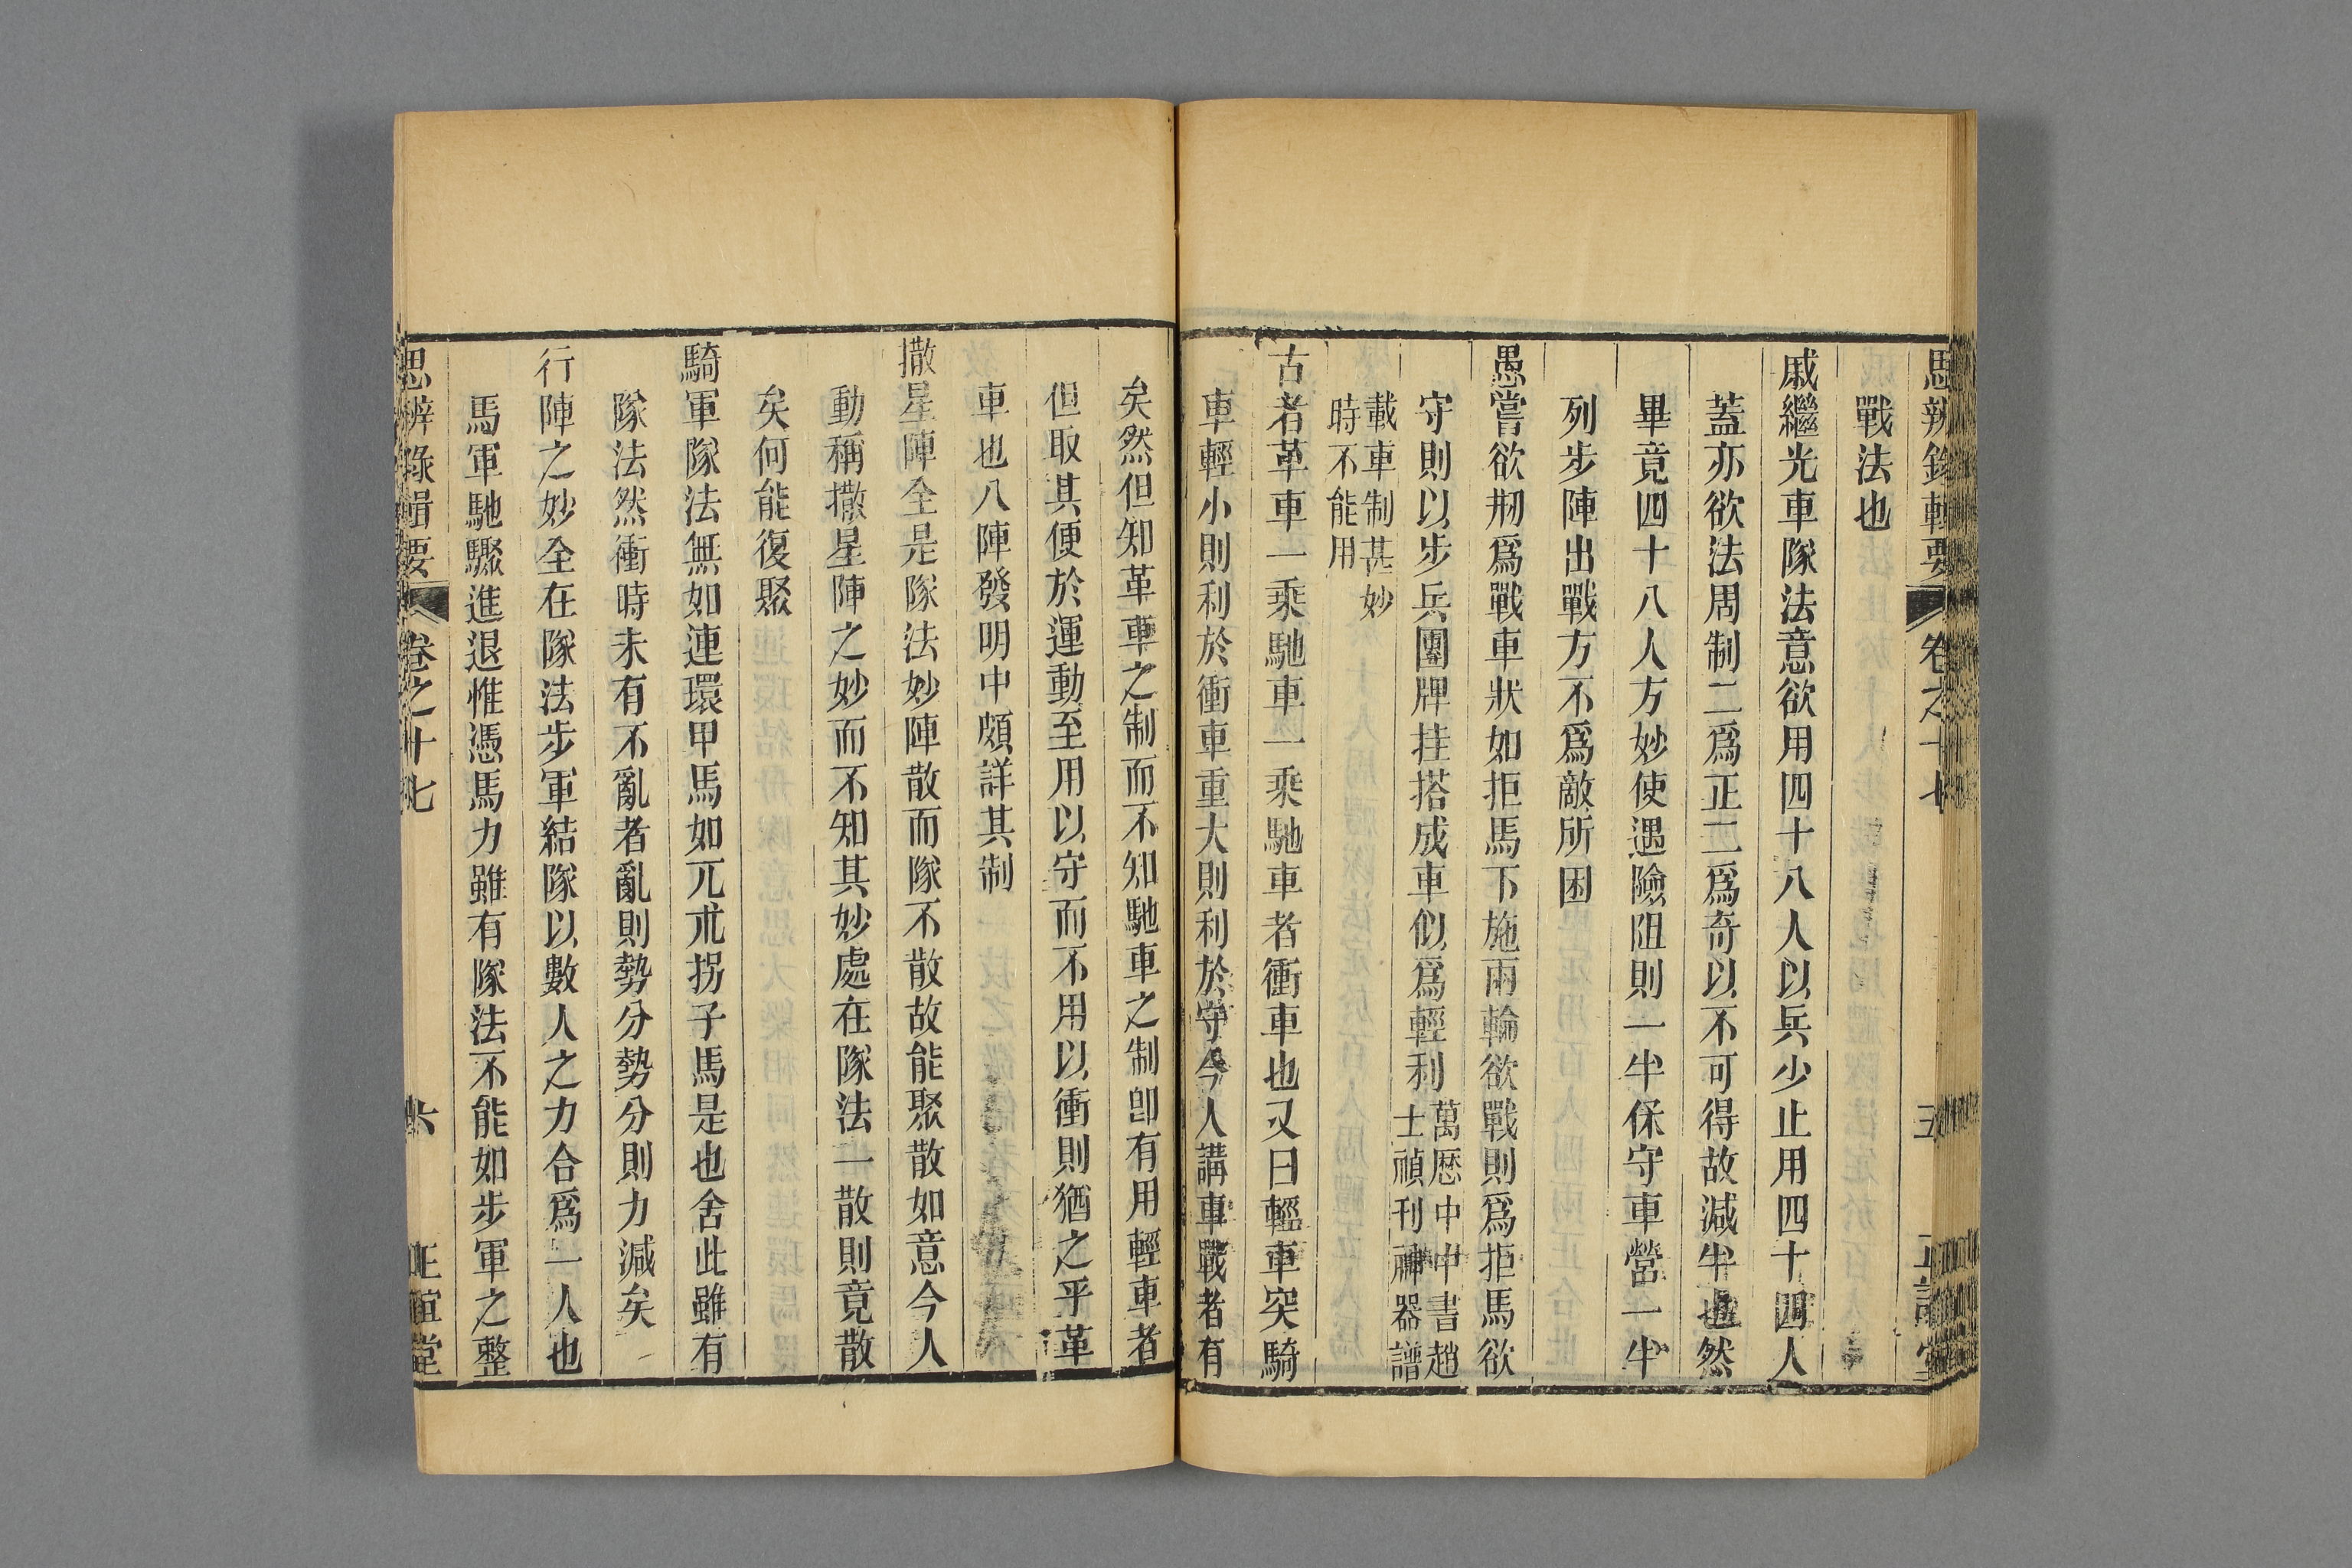 思辨錄輯要 卷之十七 五 正誼堂
戰法也
戚繼光車隊法意欲用四十八人以兵少止用四十四人
蓋亦欲法周制二爲正二爲奇以不可得故減半也然
畢竟四十八人方妙使遇險阻則一半保守車營一半
列步陣出戰方不爲敵所困
愚嘗欲刱爲戰車狀如拒馬下施兩輪欲戰則爲拒馬欲
守則以步兵團牌挂搭成車似爲輕利萬歷中中書趙士禎刊神器譜
載車制甚妙時不能用
古者革車一乘馳車一乘馳車者衝車也又曰輕車突騎
車輕小則利於衝車重大則利於守今人講車戰者有
矣然但知革車之制而不知馳車之制卽有用輕車者
但取其便於運動至用以守而不用以衝則猶之乎革
車也八陣發明中頗詳其制
撒星陣全是隊法妙陣散而隊不散故能聚散如意今人
動稱撒星陣之妙而不知其妙處在隊法一散則竟散
矣何能復聚
騎軍隊法無如連環甲馬如兀朮拐子馬是也舍此雖有
隊法然衝時未有不亂者亂則勢分勢分則力減矣
行陣之妙全在隊法步軍結隊以數人之力合爲一人也
馬軍馳驟進退惟憑馬力雖有隊法不能如步軍之整
思辨錄輯要 卷之十七 六 正誼堂